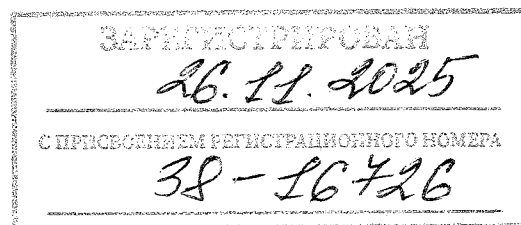 ЗАРЕГИСТРИРОВАН
26.11.2025
С ПРИСВОЕНИЕМ РЕГИСТРАЦИОННОГО НОМЕРА
38-16726